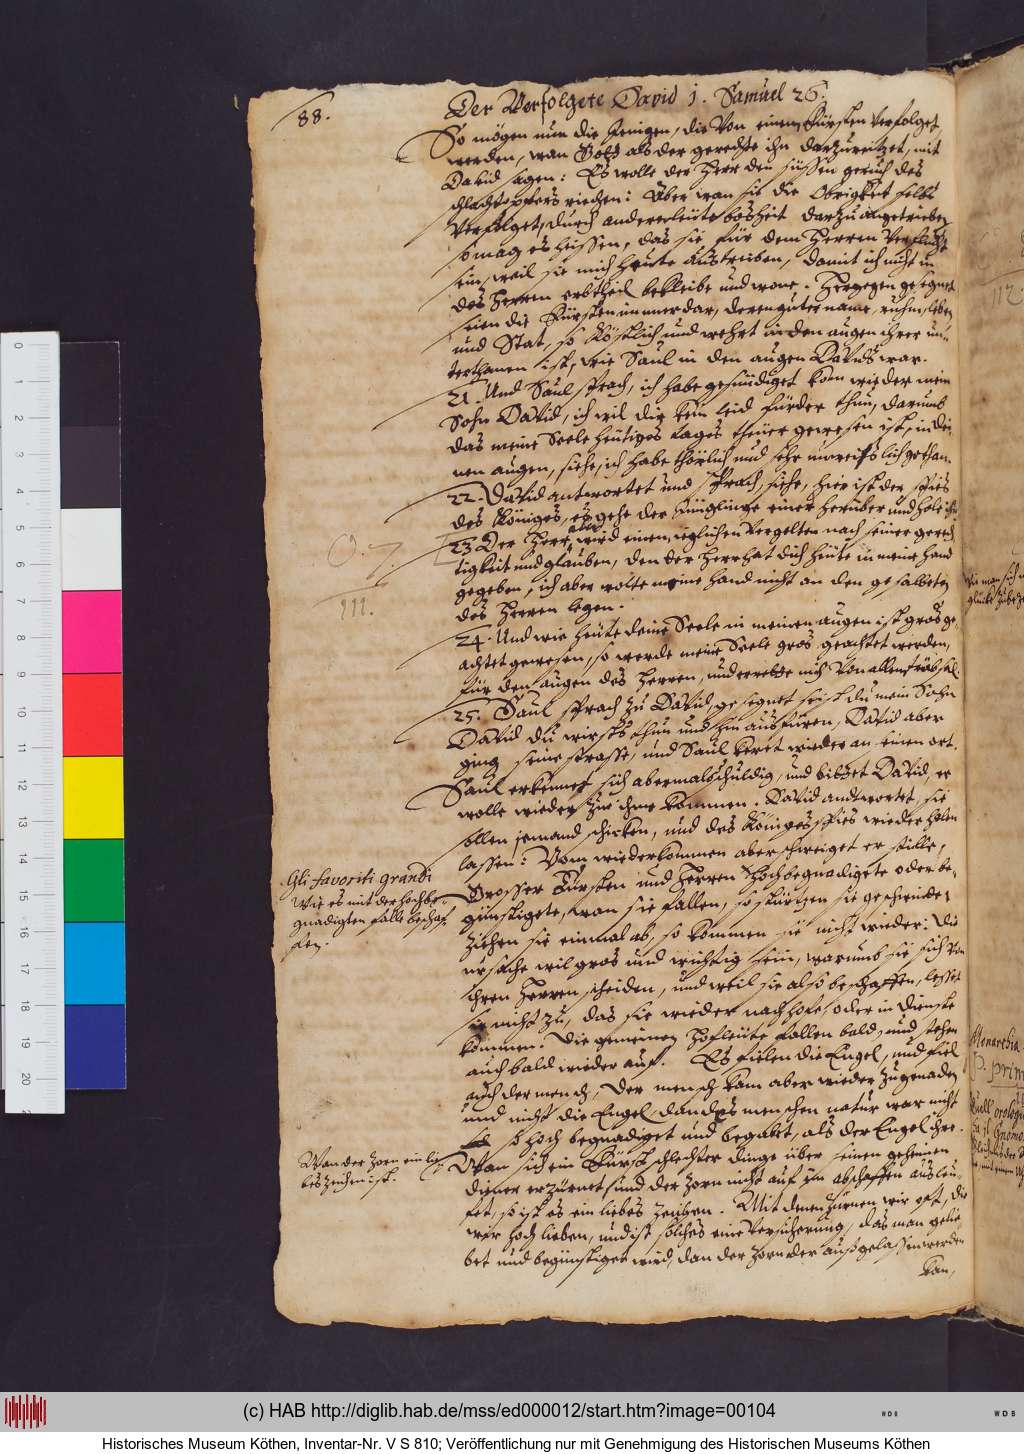 88.
Der Verfolgete David 1. Samuel 26.
So mögen nun die Jenigen, die Von einem Fürsten Verfolget
werden, wan Gott als der gerechte ihn darzu reitzet, mit
David sagen: Es wolle der Herr den süssen geruch des
schlachtopfers riechen: Aber wan sie die Obrigkeit selbs
Verfolget, durch anderer leüte bösheit darzu angetrieben
so mag es heissen, das sie für dem Herren Verflucht
sein, weil sie mich heute austreiben, damit ich nicht in
des Herren erbtheil bekleibe und wone. Hergegen gesegnet
seien die Fürsten immerdar, deren guter name, ruhm, leben
und Stat, so köstlich und wehrt in den augen ihrer un-
terthanen ist, wie Saül in den augen Davids war.
21. Und Saül sprach, ich habe gesündiget kom wieder mein
Sohn David, ich wil dir kein leid fürder thun, darumb
das meine Seele heütiges tages theüer gewesen ist, in dei-
nen augen, siehe, ich habe thörlich und sehr unweislich gethan.
22. David antwortet und sprach, siehe, hier ist der spies
des Königes, es gehe der Jünglinge einer herüber und hole ihn
23 Der Herr aber wird einem ieglichen Vergelten nach seiner gerech
tigkeit und glauben, den der Herr hat dich heüte in meine hand
gegeben, ich aber wolte meine hand nicht an den gesalbeten
des Herren legen.
O. 7.
111.
24. Und wie heüte deine Seele in meinen augen ist gros ge-
achtet gewesen, so werde meine Seele gros geachtet werden,
für den augen des Herren, und errette mich Von allem trübsal.
25. Saül sprach zu David, gesegnet seist du mein Sohn
David du wirsts thun und hin ausfüren, David aber
ging seine strasse, und Saül keret wieder an seinen ort.
Saül erkennet sich abermal schuldig, und bittet David, er
wolle wieder zu ihme kommen. David andtwortet, sie
sollen jemand schicken, und des Königes spies wieder holen
lassen: Vom wiederkommen aber schweiget er stille,
Gli favoriti grandi
Wie es mit der hochbe-
gnadigten falle beschaf-
fen.
Grosser Fürsten und Herren Hochbegnadigete oder be-
günstigete, wan sie fallen, so stürtzen sie geschwinde:
Ziehen sie einmal ab, so kommen sie nicht wieder: Die
ursache wil gros und wichtig sein, warumb sie sich Von
ihren Herren scheiden, und weil sie also beschaffen, lesset
sie nicht zu, das sie wieder nach hofe, oder in dienste
kommen. Die gemeinen Hofleüte fallen bald, und stehen
auch bald wieder auf. Es fielen die Engel, und fiel
auch der mensch, Der mensch kam aber wieder zu gnaden
und nicht die Engel, dan des menschen natur war nicht
so hoch begnadiget und begabet, als der Engel ihre.
Wan der zorn ein lie-
bes zeichen ist.
Wan sich ein Fürst schlechter dinge über seinen geheimen
diener erzürnet und der zorn nicht auf ein abschaffen ausleu-
fet, so ist es ein liebes zeichen. Mit denen zürnen wir oft, die
wir hoch lieben, und ist solches eine Versicherung, das man gelie-
bet und begünstiget wird, dan der zorn der außgelassen werden
kan,
(c) HAB http://diglib.hab.de/mss/ed000012/start.htm?image=00104
Historisches Museum Köthen, Inventar-Nr. V S 810; Veröffentlichung nur mit Genehmigung des Historischen Museums Köthen